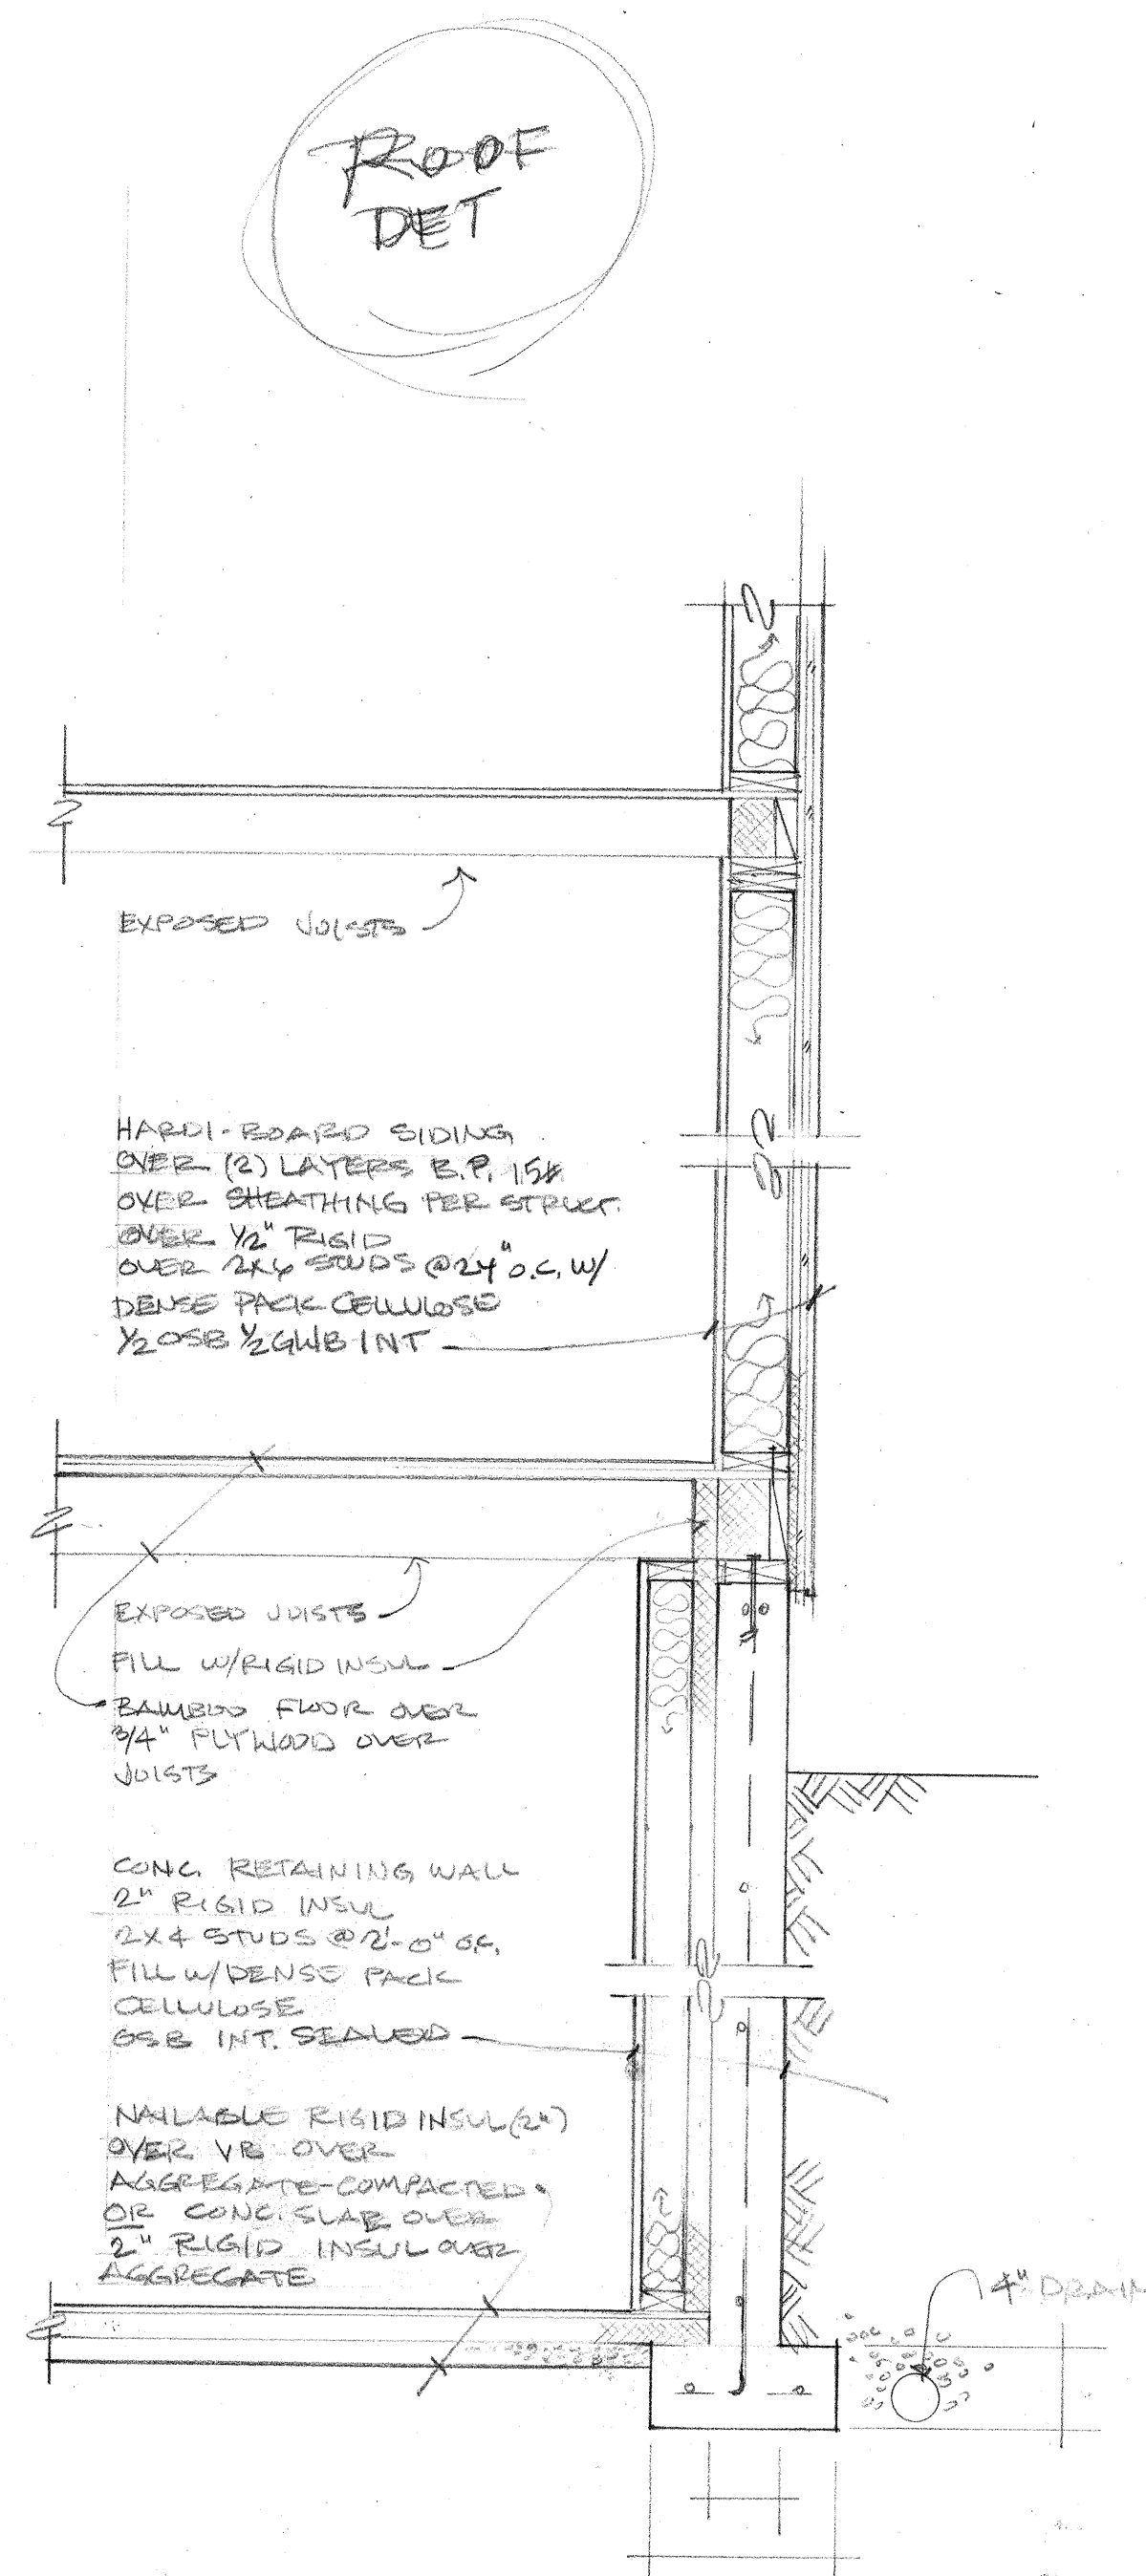 ROOF
DET
EXPOSED JOISTS
HARDI-BOARD SIDING
OVER (2) LAYERS B.P. 15#
OVER SHEATHING PER STRUCT.
OVER 1/2" RIGID
OVER 2X6 STUDS @ 24" O.C. W/
DENSE PACK CELLULOSE
1/2 OSB 1/2 GWB INT
EXPOSED JOISTS
FILL W/RIGID INSUL
BAMBOO FLOOR OVER
3/4" PLYWOOD OVER
JOISTS
CONC. RETAINING WALL
2" RIGID INSUL
2X4 STUDS @ 2'-0" O.C.
FILL W/DENSE PACK
CELLULOSE
OSB INT. SEALED
NAILABLE RIGID INSUL (2")
OVER VB OVER
AGGREGATE-COMPACTED
OR CONC. SLAB OVER
2" RIGID INSUL OVER
AGGREGATE
4" DRAIN